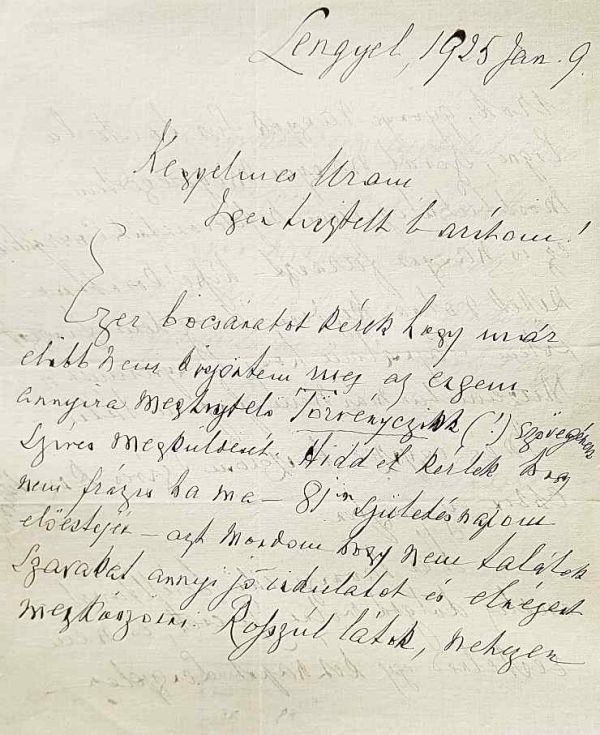 Lengyel, 1925 Jan. 9.
Kegyelmes Uram
Igen tisztelt barátom!
Ezer bocsánatot kérek hogy már
előbb nem köszöntem meg az engem
annyira megtisztelő Törvényczikk (!) szövegének
szíves megküldését. Hidd el kérlek hogy
nem frázis ha ma – 81in születésnapom
előestéjén – azt mondom hogy nem találok
szavakat annyi jóindulatot és elnézést
megköszönni. Rosszul látok, nehezen